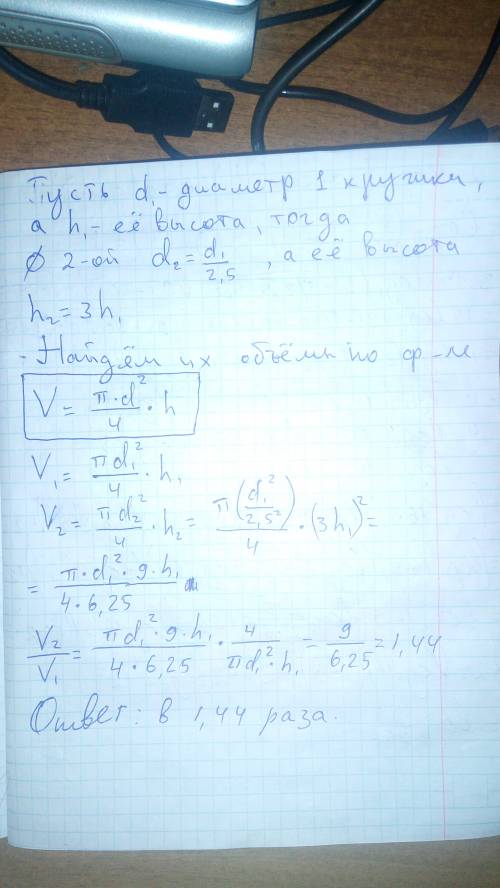 Пусть d₁ - диаметр 1 кружки,
а h₁ - её высота, тогда
∅ 2-ой d₂ = d₁/2,5 , а её высота
h₂ = 3h₁
- Найдём их объёмы по ф-ле
V = π·d²/4 · h
V₁ = πd₁²/4 · h₁
V₂ = πd₂²/4 · h₂ = π(d₁²/2,5²)/4 · (3h₁)² =
= π·d₁²·9·h₁/4·6,25
V₂/V₁ = πd₁²·9·h₁/4·6,25 · 4/πd₁²·h₁ = 9/6,25 = 1,44
Ответ: в 1,44 раза.